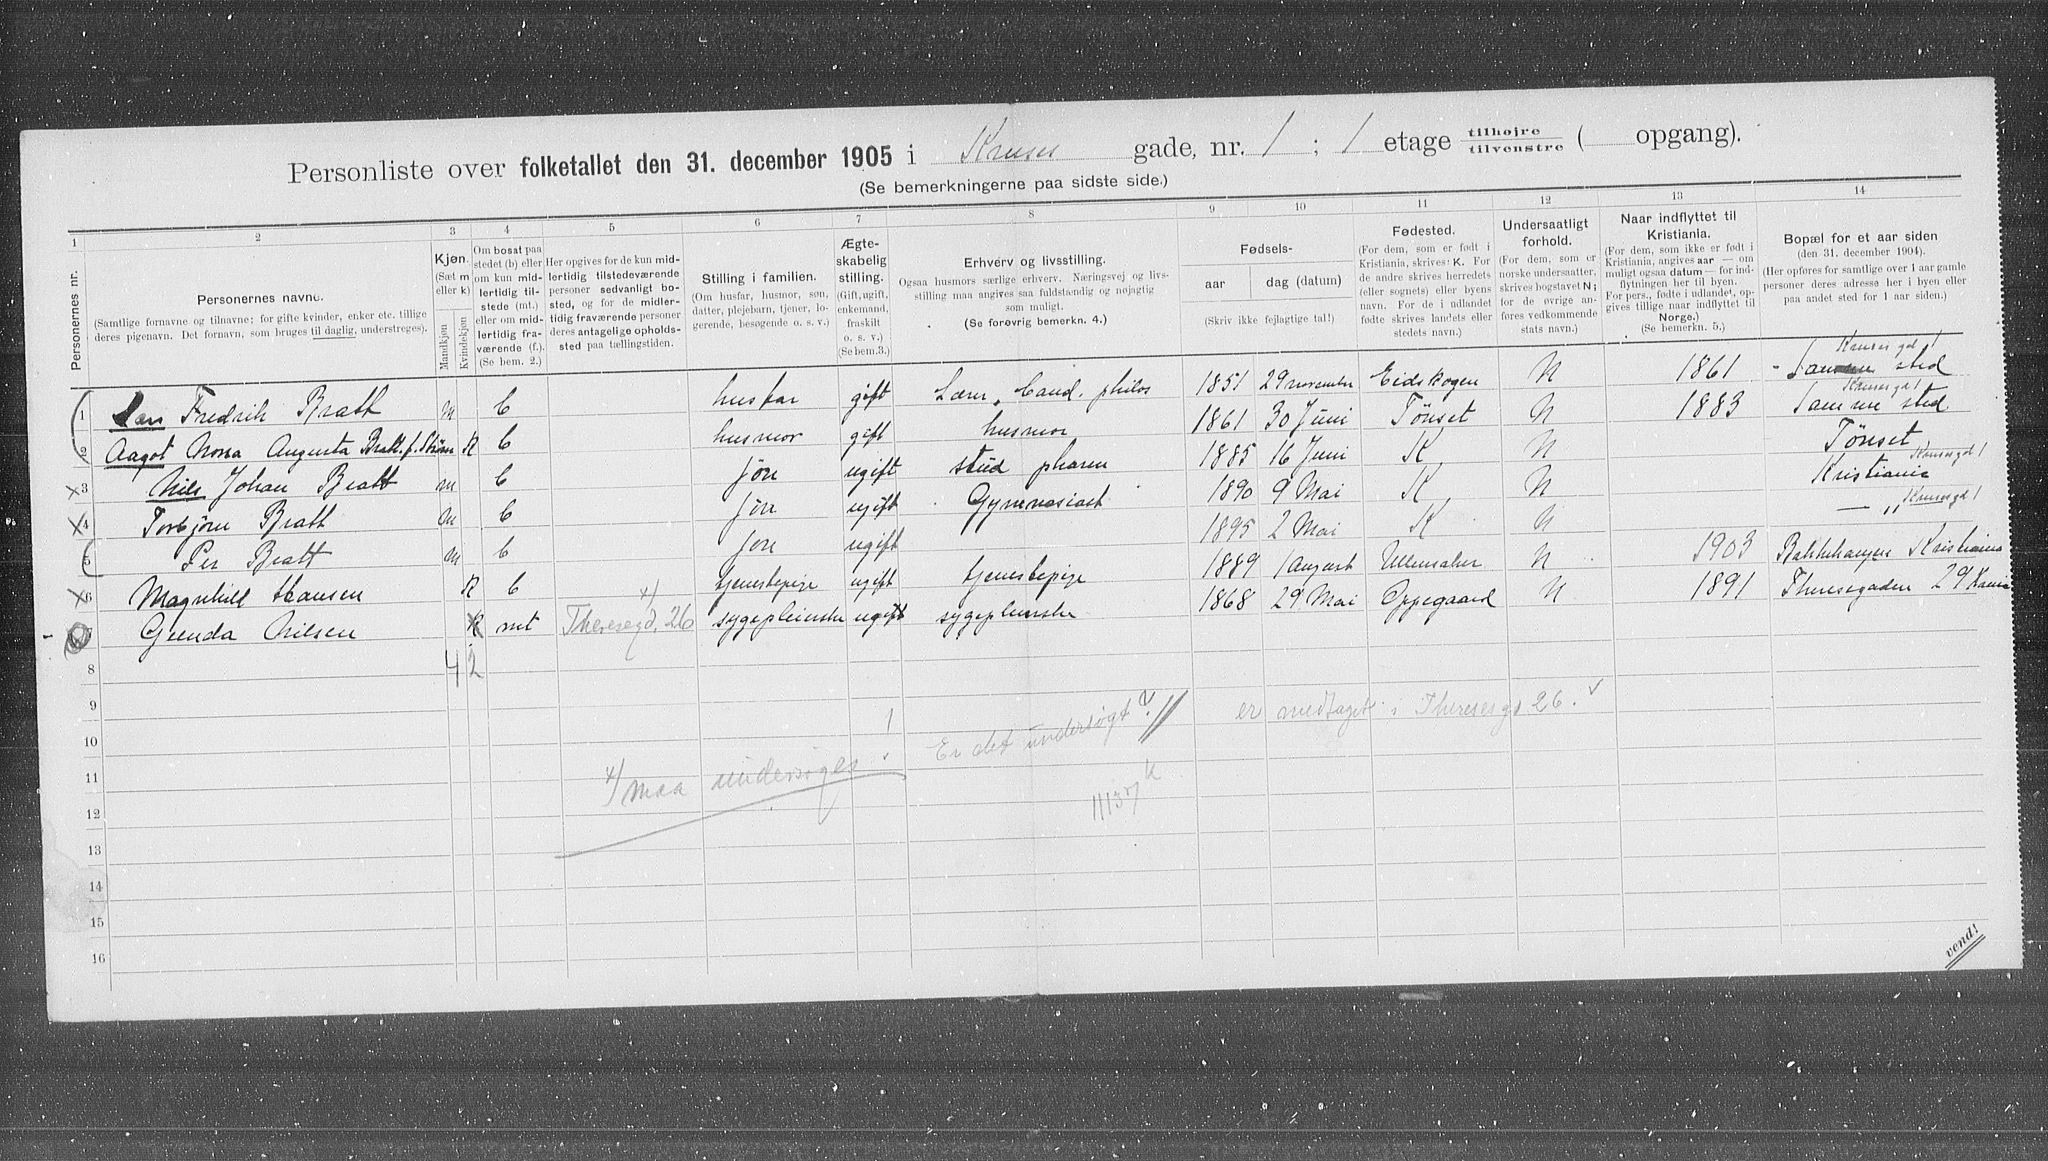 Personliste over folketallet den 31. december 1905 i Kruses gade, nr. 1 ; 1 etage tilhøjre tilvenstre ( opgang).
(Se bemerkningerne paa sidste side.)
1 2 3 4 5 6 7 8 9 10 11 12 13 14
Personernes nr.
Personernes navne.
(Samtlige fornavne og tilnavne; for gifte kvinder, enker etc. tillige
deres pigenavn. Det fornavn, som bruges til daglig, understreges).
Kjøn.
(Sæt m
eller k)
Mandkjøn
Kvindekjøn
Om bosat paa
stedet (b) eller
om kun mid-
lertidig til-
stede (mt.)
eller om mid-
lertidig fra-
værende (f.).
(Se bem. 2.)
Her opgives for de kun mid-
lertidig tilstedeværende
personer sedvanligt bo-
sted, og for de midler-
tidig fraværende personer
deres antagelige opholds-
sted paa tællingstiden.
Stilling i familien.
(Om husfar, husmor, søn,
datter, plejebarn, tjener, lo-
gerende, besøgende o. s. v.)
Ægte-
skabelig
stilling.
(Gift, ugift,
enkemand,
fraskilt
o. s. v.)
(Se bem.3.)
Erhverv og livsstilling.
Ogsaa husmors særlige erhverv. Næringsvej og livs-
stilling maa angives saa fuldstændig og nøjagtig
som muligt.
(Se forøvrig bemerkn. 4.)
Fødsels-
aar dag (datum)
(Skriv ikke fejlagtige tal!)
Fødested.
(For dem, som er født i
Kristiania, skrives: K. For
de andre skrives herredets
(eller sognets) eller byens
navn. For de i udlandet
fødte skrives landets eller
stedets navn.)
Undersaatligt
forhold.
(For dem, som er
norske undersaatter,
skrives bogstavet N;
for de øvrige an-
føres vedkommende
stats navn.)
Naar indflyttet til
Kristiania.
(For dem, som ikke er født i
Kristiania, angives aar — om
muligt ogsaa datum — for ind-
flytningen her til byen.
For pers., fødte i udlandet, op-
gives tillige naar indflyttet til
Norge.)
(Se bemerkn. 5.)
Bopæl for et aar siden
(den 31. december 1904).
(Her opføres for samtlige over 1 aar gamle
personer deres adresse her i byen eller
paa andet sted for 1 aar siden.)
Krusesgd 1
1 Lars Fredrik Bratt m b husfar gift Lærer, Cand. philos 1851 29 november Eidskogen N 1861 Samme sted
Krusesgd 1
2 Aagot Nora Augusta Bratt f. Strøm k b husmor gift husmor 1861 30 Juni Tönset N 1883 Samme sted
3 Nils Johan Bratt m b søn ugift stud pharm 1885 16 Juni K N Tönset
Krusesgd 1
4 Torbjörn Bratt m b søn ugift Gymnasiast 1890 9 Mai K N Kristiania
Krusesgd 1
5 Per Bratt m b søn ugift 1895 2 Mai K N — „
6 Magnhild Hansen k b tjenestepige ugift tjenestepige 1889 1 August Ullensaker N 1903 Bakkehaugen Kristiania
7 Gunda Nilsen k mt Theresegd. 26 sygepleierske ugift sygepleierske 1868 29 Mai Oppegaard N 1891 Theresegaden 29 Krania
8 4 2
9 er medtaget i Theresesgd 26.
10 Er det undersøgt?
11 maa undersøges!
12 11137
13
14
15
16
vend!